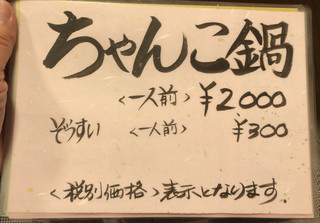 ちゃんこ鍋
<一人前> ¥2000
ぞうすい <一人前> ¥300
<税別価格>表示となります。